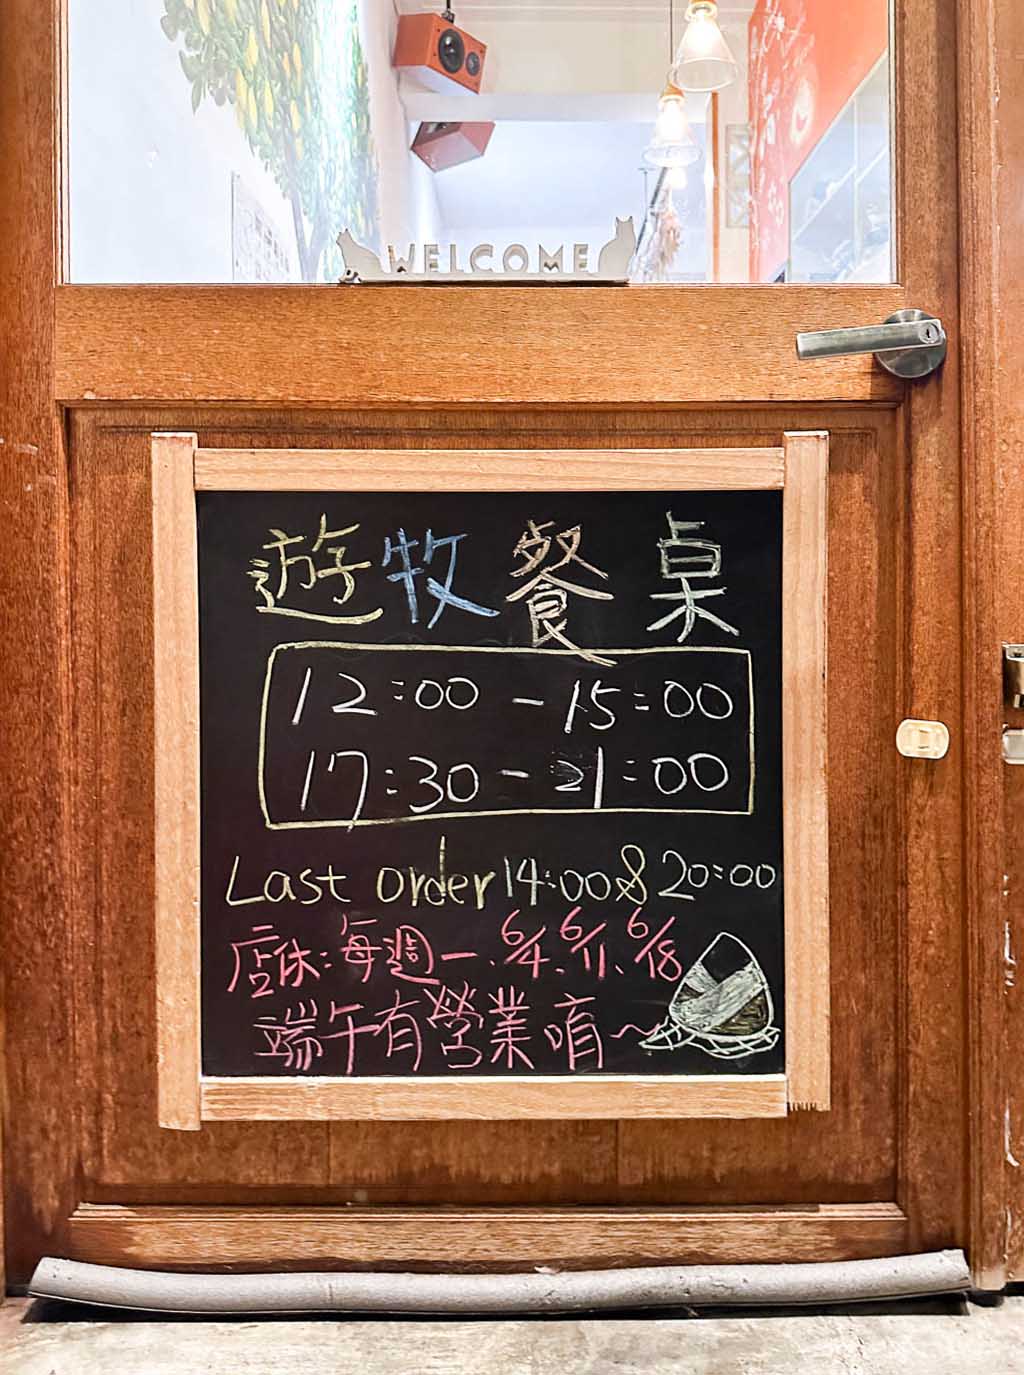 WELCOME
遊牧餐桌
12:00 - 15:00
17:30 - 21:00
Last order 14:00 & 20:00
店休:每週一、6/4、6/11、6/18
端午有營業唷~